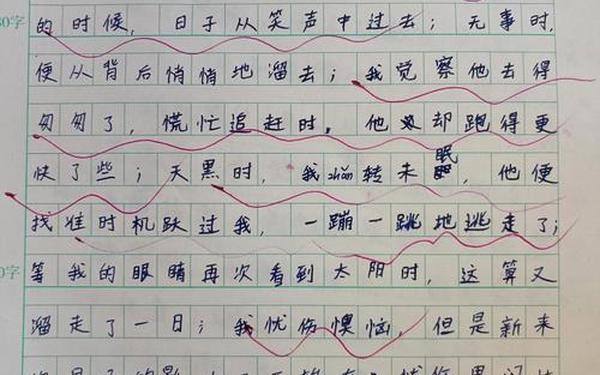 80字
的时候，日子从笑声中过去；无事时，
便从背后悄悄地溜去；我觉察他去得
匆匆了，慌忙追赶时，他却跑得更
快了些；天黑时，我zhǎn转未眠，他便
找准时机跃过我，一蹦一跳地逃走了；
等我的眼睛再次看到太阳时，这算又
溜走了一日；我忧伤懊恼，但是新来